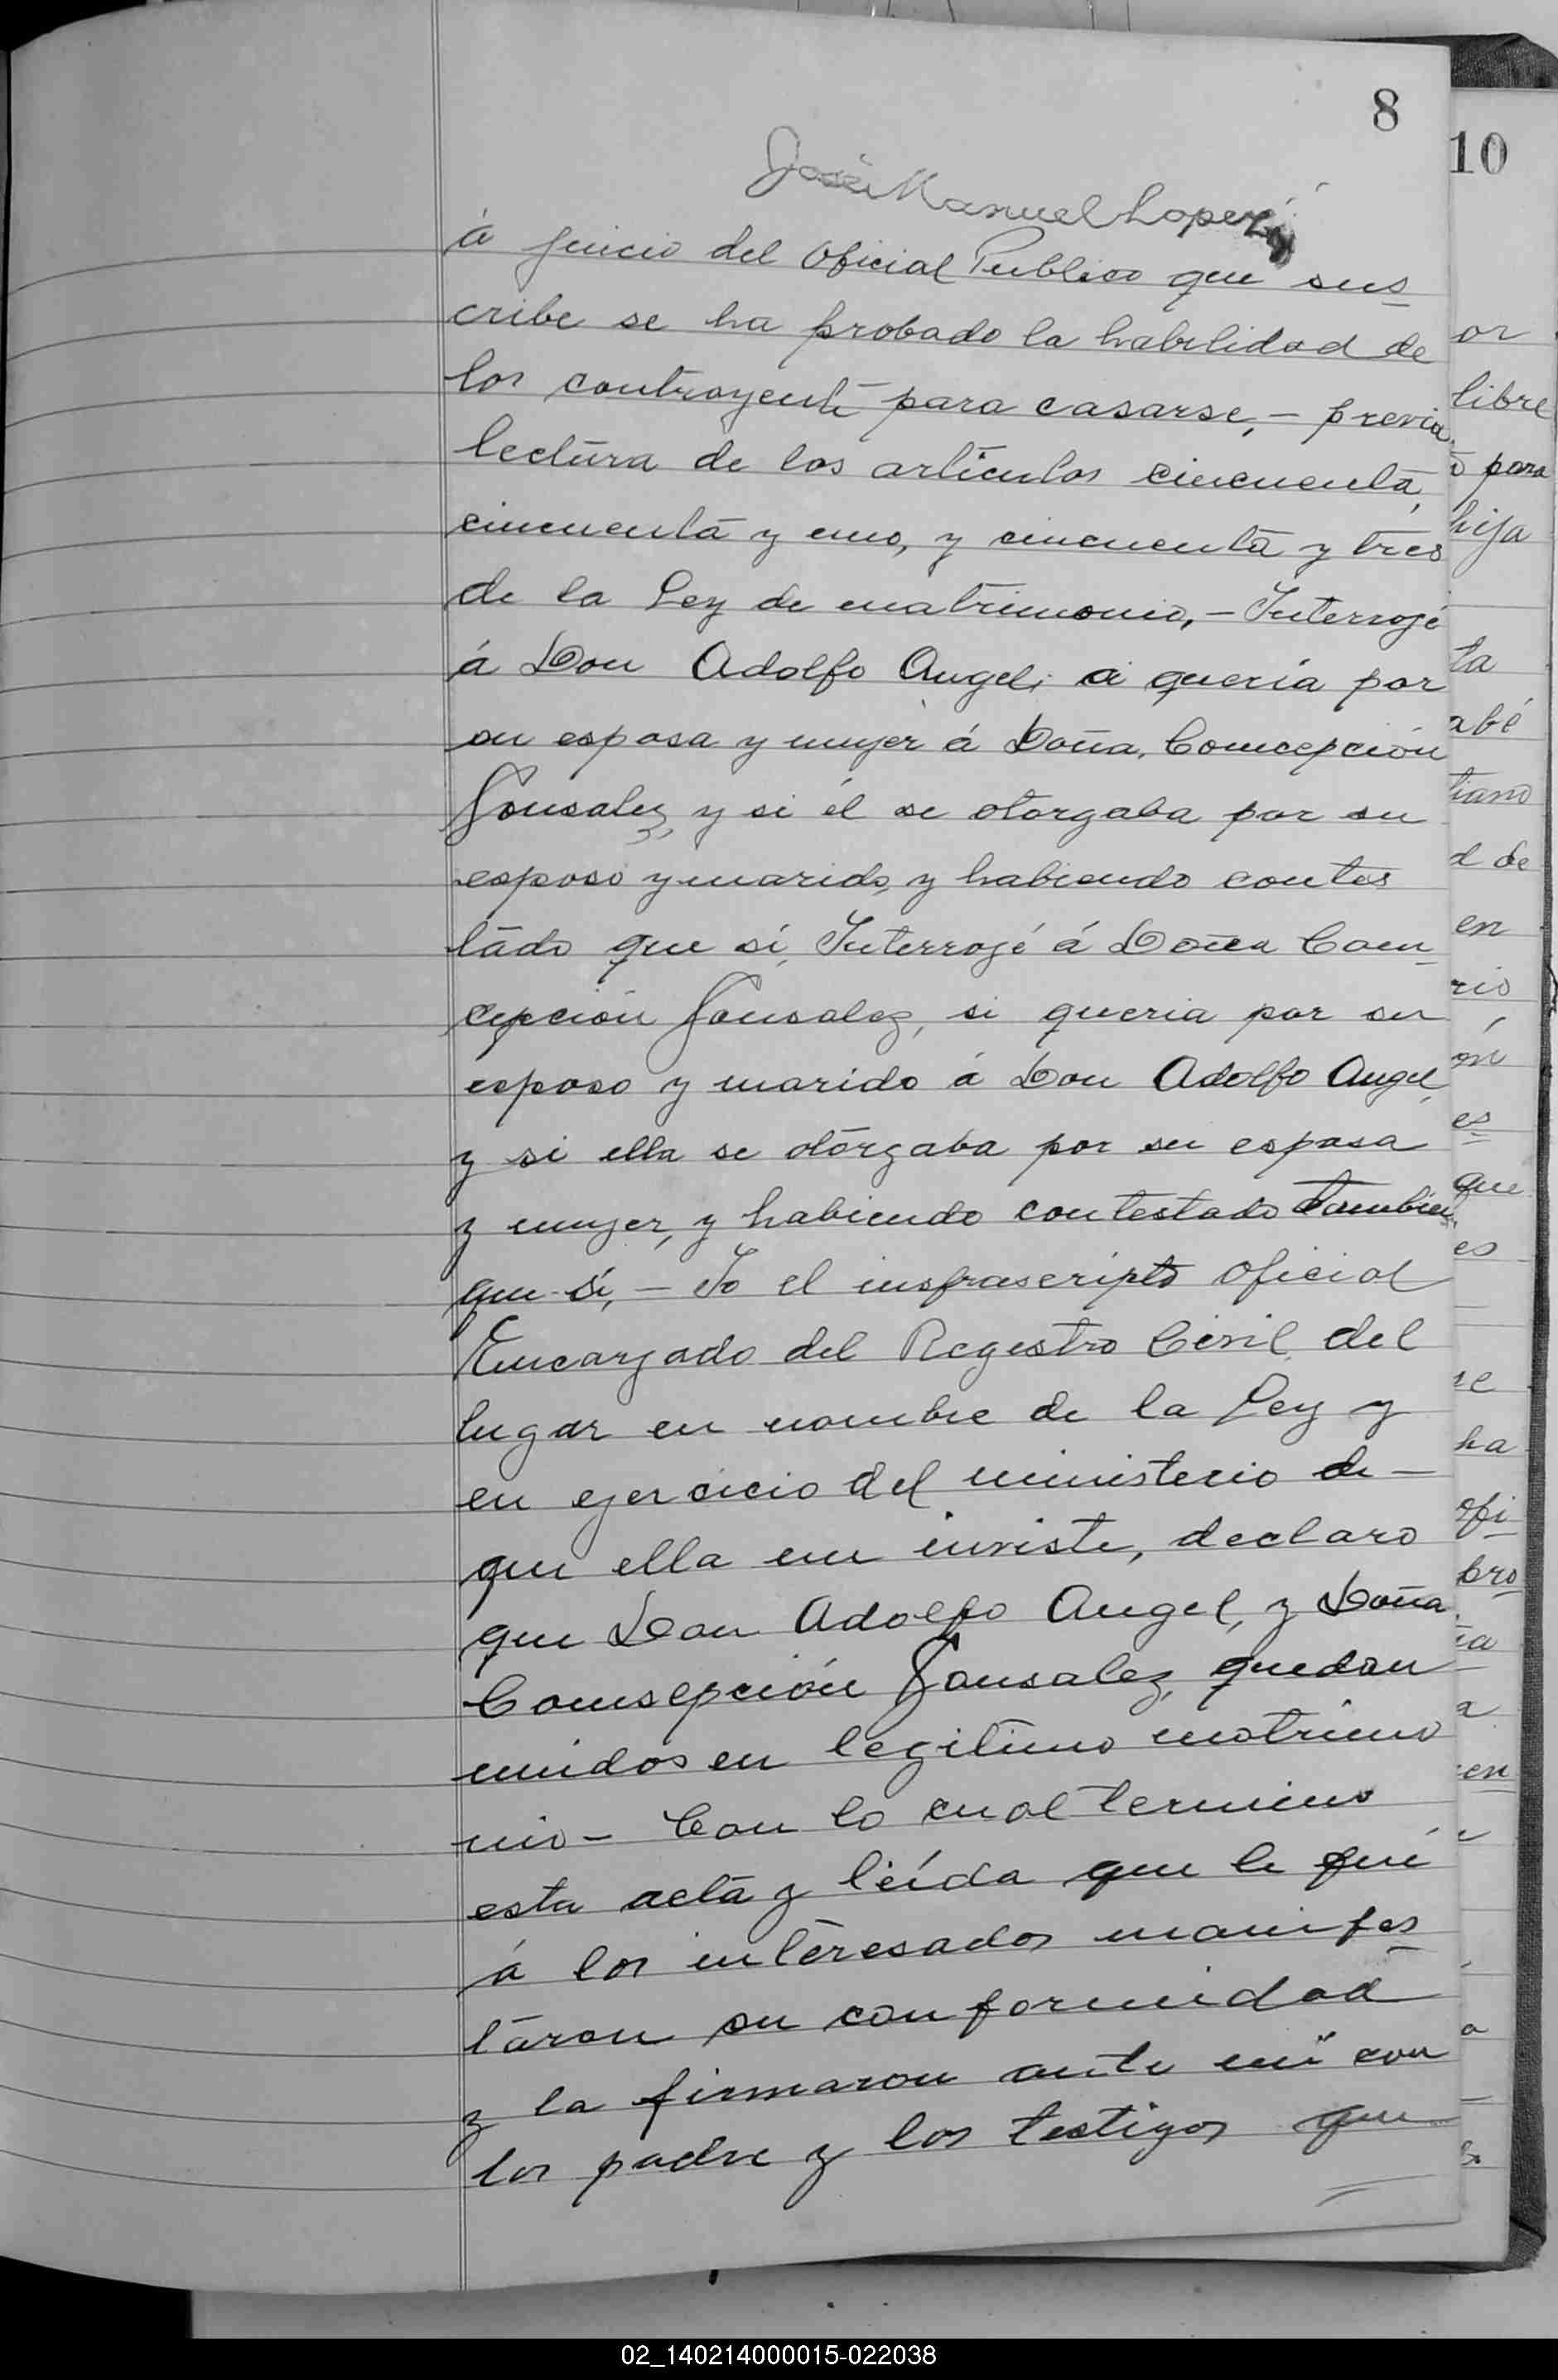 8
José Manuel Lopez
á juicio del Oficial Publico que sus
cribe se ha probado la habilidad de
los contrayente para casarse, – previa
lectura de los artículos cincuenta,
cincuenta y uno, y cincuenta y tres
de la Ley de matrimonio, – Interrogé
á Don Adolfo Angel, si quería por
su esposa y mujer á Doña, Comcepción
Gonsalez, y si él se otorgaba por su
esposo y marido, y habiendo contes
tado que sí, Interrogé á Doña Com
cepción Gonsalez, si queria por su
esposo y marido á Don Adolfo Angel,
y si ella se otorgaba por su esposa
y mujer, y habiendo contestado tambien
que sí, – Yo el insfrascripto Oficial
Encargado del Registro Civil del
lugar en nombre de la Ley y
en ejercicio del ministerio de –
que ella me inviste, declaro
que Don Adolfo Angel, y Doña
Comsepción Gonsalez, quedan
unidos en legitimo matrimo
nio – Con lo cual termino
esta acta y leída que le fué
á los interesados manifes
taron su conformidad
y la firmaron ante mi con
los padre y los testigos que
10
or
libre
para
hija
ta
abé
tiano
d de
en
rio
ón
es
que
es
re
ha
ofi
pro
ña
a
en
02_140214000015-022038